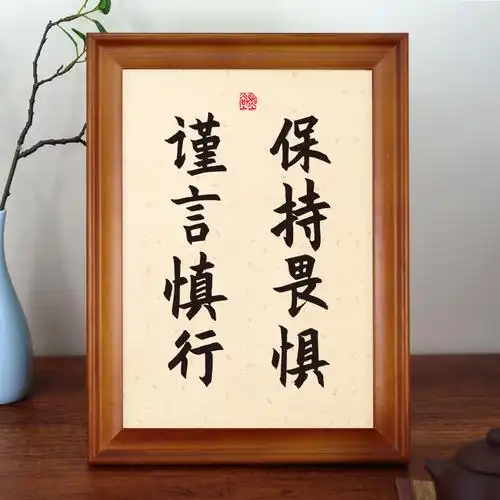 保持畏惧
谨言慎行